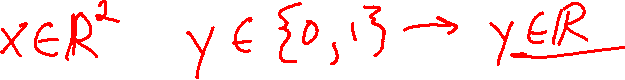 x∈ℝ² y∈{0,1}→ y∈ℝ